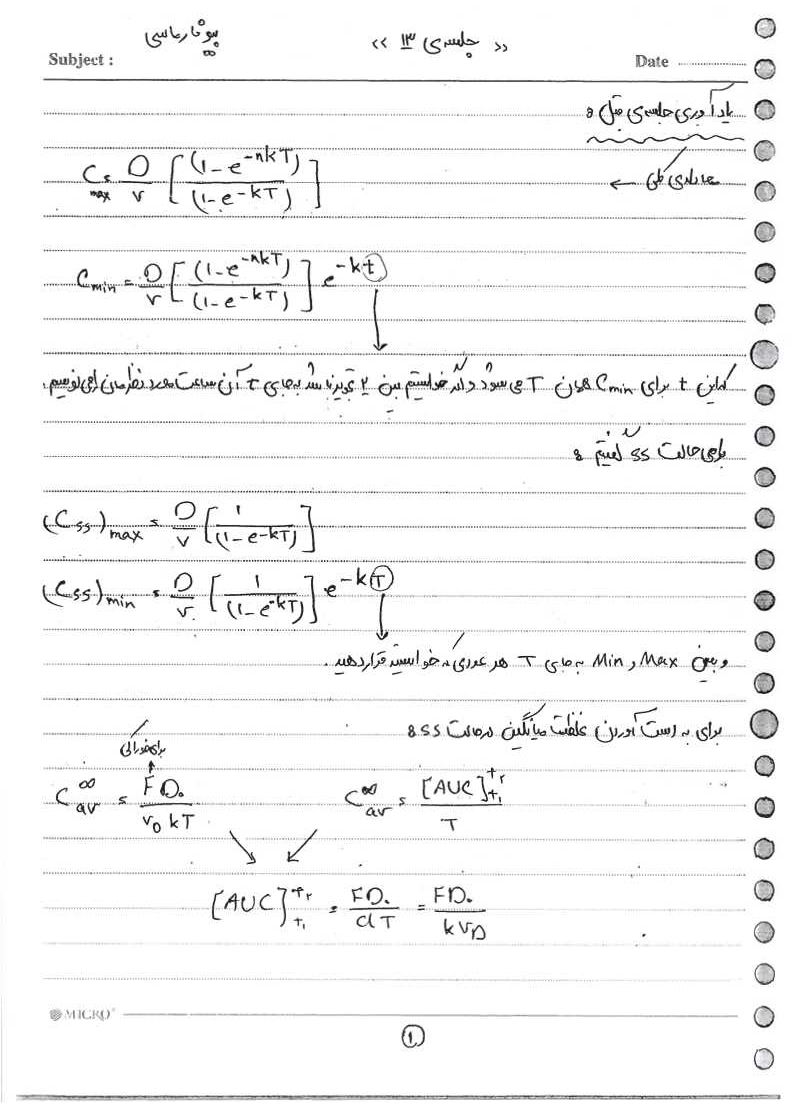 بیوفارماسی
« جلسه‌ی ۱۳ »
Subject :
Date
یادآوری جلسه‌ی قبل :
معادله‌ی کلی ←
C max = D/V [ (1-e^-nkT) / (1-e^-kT) ]
C min = D/V [ (1-e^-nkT) / (1-e^-kT) ] e^-kt
که این t برای Cmin همان T می شود و اگر خواستیم بین ۲ تجویز باشد به جای t آن ساعت مورد نظرمان را می نویسیم.
برای حالت ss گفتیم :
(Css)max = D/V [ 1 / (1-e^-kT) ]
(Css)min = D/V [ 1 / (1-e^-kT) ] e^-kT
و بین Max و Min به جای T هر عددی که خواستید قرار دهید.
برای به دست آوردن غلظت میانگین در حالت ss :
برای خوراکی
C∞av = FD₀ / V_D kT
C∞av = [AUC]t₁^t₂ / T
[AUC]t₁^t₂ = FD₀ / clT = FD₀ / kV_D
MICRO
۱